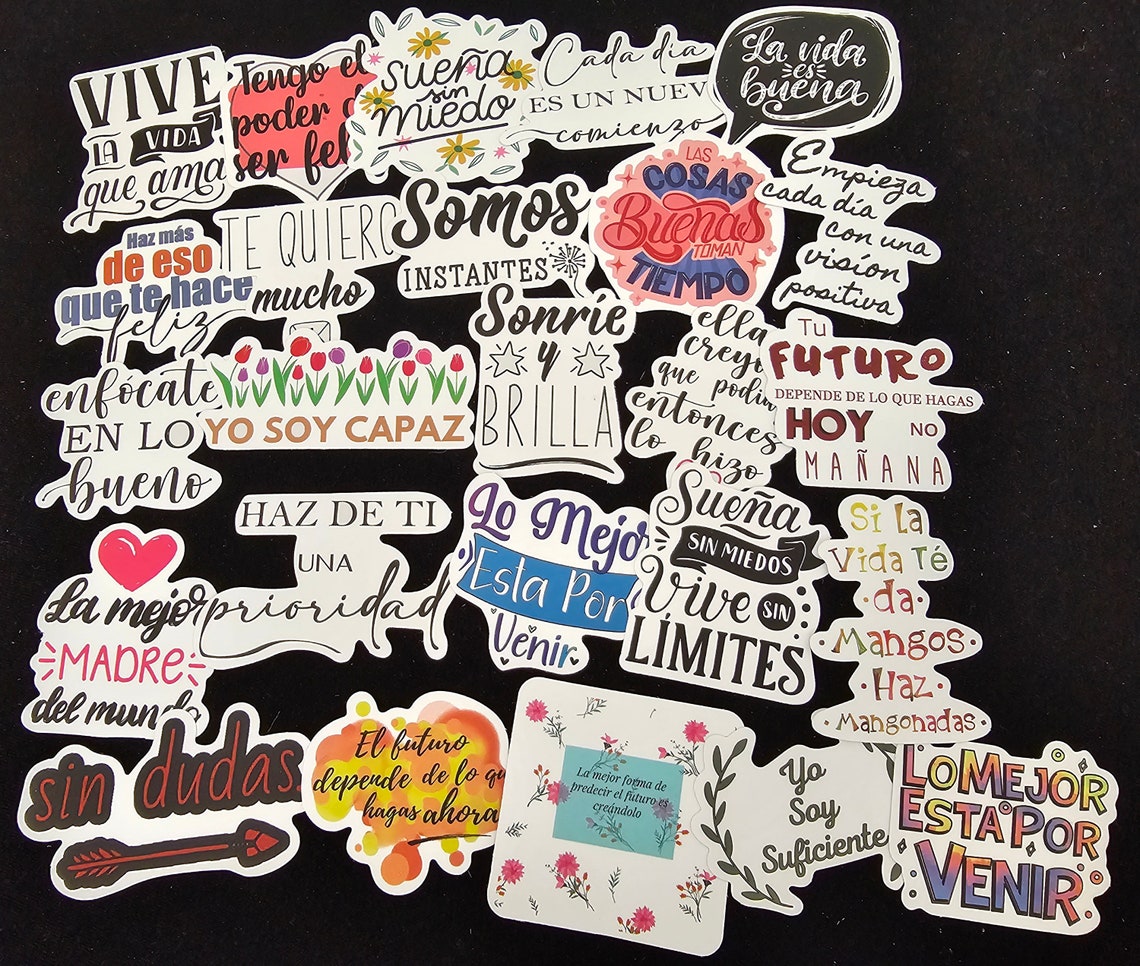 VIVE
LA VIDA
que ama
Tengo el
poder d
ser fel
sueña
sin
miedo
Cada dia
ES UN NUEV
comienzo
La vida
es
buena
Haz más
de eso
que te hace
feliz
TE QUIERO
mucho
Somos
INSTANTES
LAS
COSAS
Buenas
TOMAN
TIEMPO
Empieza
cada día
con una
visión
positiva
enfócate
EN LO
bueno
YO SOY CAPAZ
Sonríe
y
BRILLA
ella
creyó
que podía
entonces
lo hizo
Tu
FUTURO
DEPENDE DE LO QUE HAGAS
HOY NO
MAÑANA
La mejor
MADRE
del mundo
HAZ DE TI
UNA
prioridad
Lo Mejor
Esta Por
Venir
Sueña
SIN MIEDOS
Vive SIN
LÍMITES
Si La
Vida Té
da
Mangos
Haz
Mangonadas
sin dudas
El futuro
depende de lo qu
hagas ahora
La mejor forma de
predecir el futuro es
creándolo
Yo
Soy
Suficiente
LO MEJOR
ESTA POR
VENIR